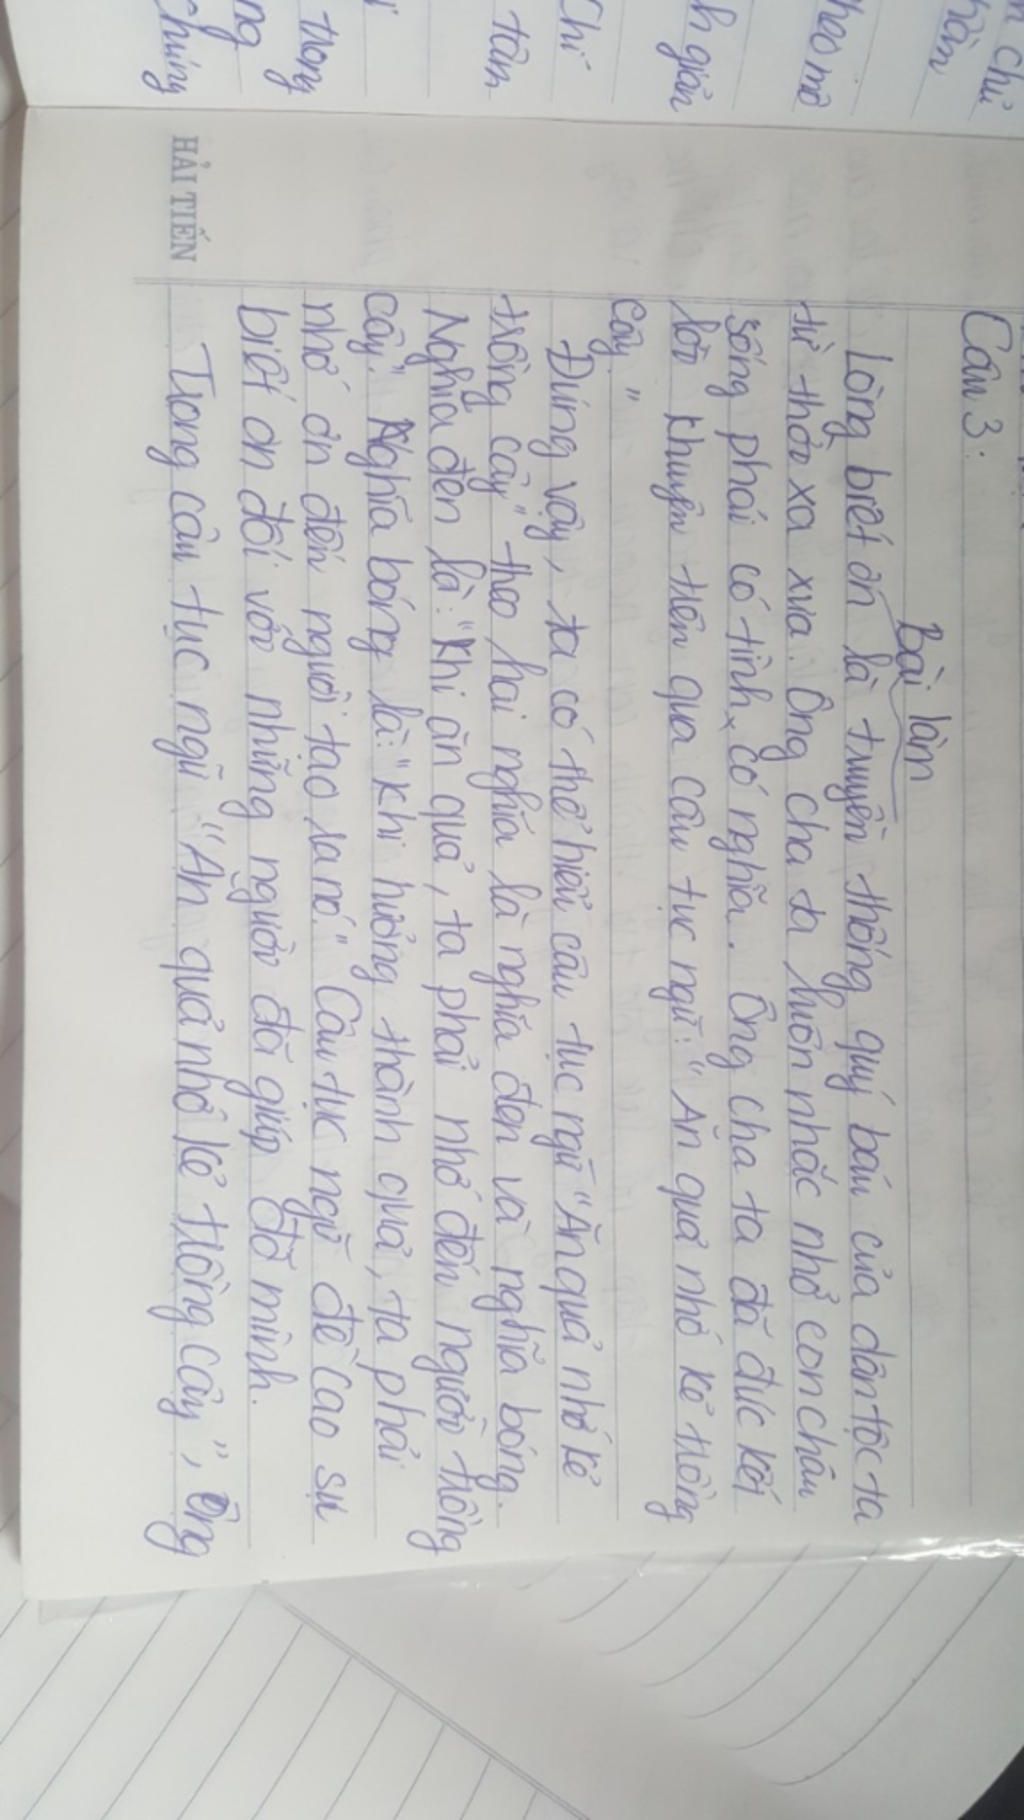 n chủ
hoàn
theo mô
h giản
Chi
tâm
trong
ng
chúng
HẢI TIẾN
Câu 3:
Bài làm
Lòng biết ơn là truyền thống quý báu của dân tộc ta
từ thời xa xưa. Ông cha ta luôn nhắc nhở con cháu
sống phải có tình, có nghĩa. Ông cha ta đã đúc kết
lời khuyên trên qua câu tục ngữ: "Ăn quả nhớ kẻ trồng
cây."
Đúng vậy, ta có thể hiểu câu tục ngữ "Ăn quả nhớ kẻ
trồng cây" theo hai nghĩa là nghĩa đen và nghĩa bóng.
Nghĩa đen là: "Khi ăn quả, ta phải nhớ đến người trồng
cây." Nghĩa bóng là: "Khi hưởng thành quả, ta phải
nhớ ơn đến người tạo ra nó." Câu tục ngữ đề cao sự
biết ơn đối với những người đã giúp đỡ mình.
Trong câu tục ngữ "Ăn quả nhớ kẻ trồng cây", ông